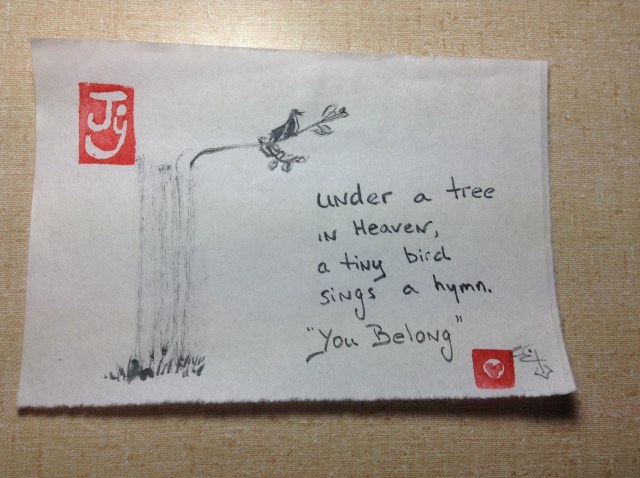 Jij
under a tree
in Heaven,
a tiny bird
sings a hymn.
"You Belong"